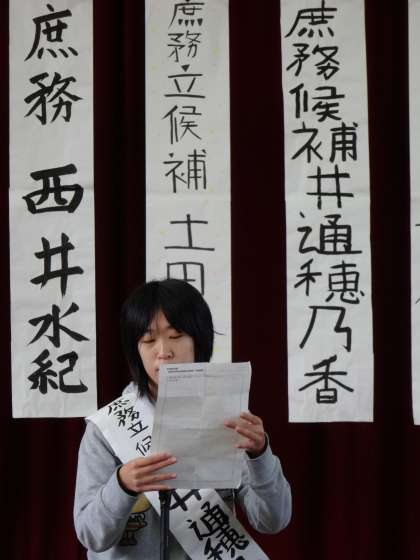 庶務候補井通穂乃香
庶務立候補土田
庶務 西井水紀
庶務立候
井通穂